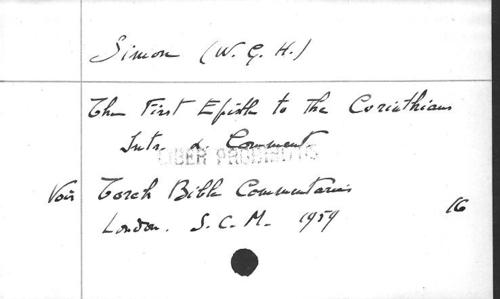 Simon (W. G. H.)
The First Epistle to the Corinthians
Intr. & Comment.
LIBER PROHIBITUS
Voir Torch Bible Commentaries
London. S. C. M. 1959 16